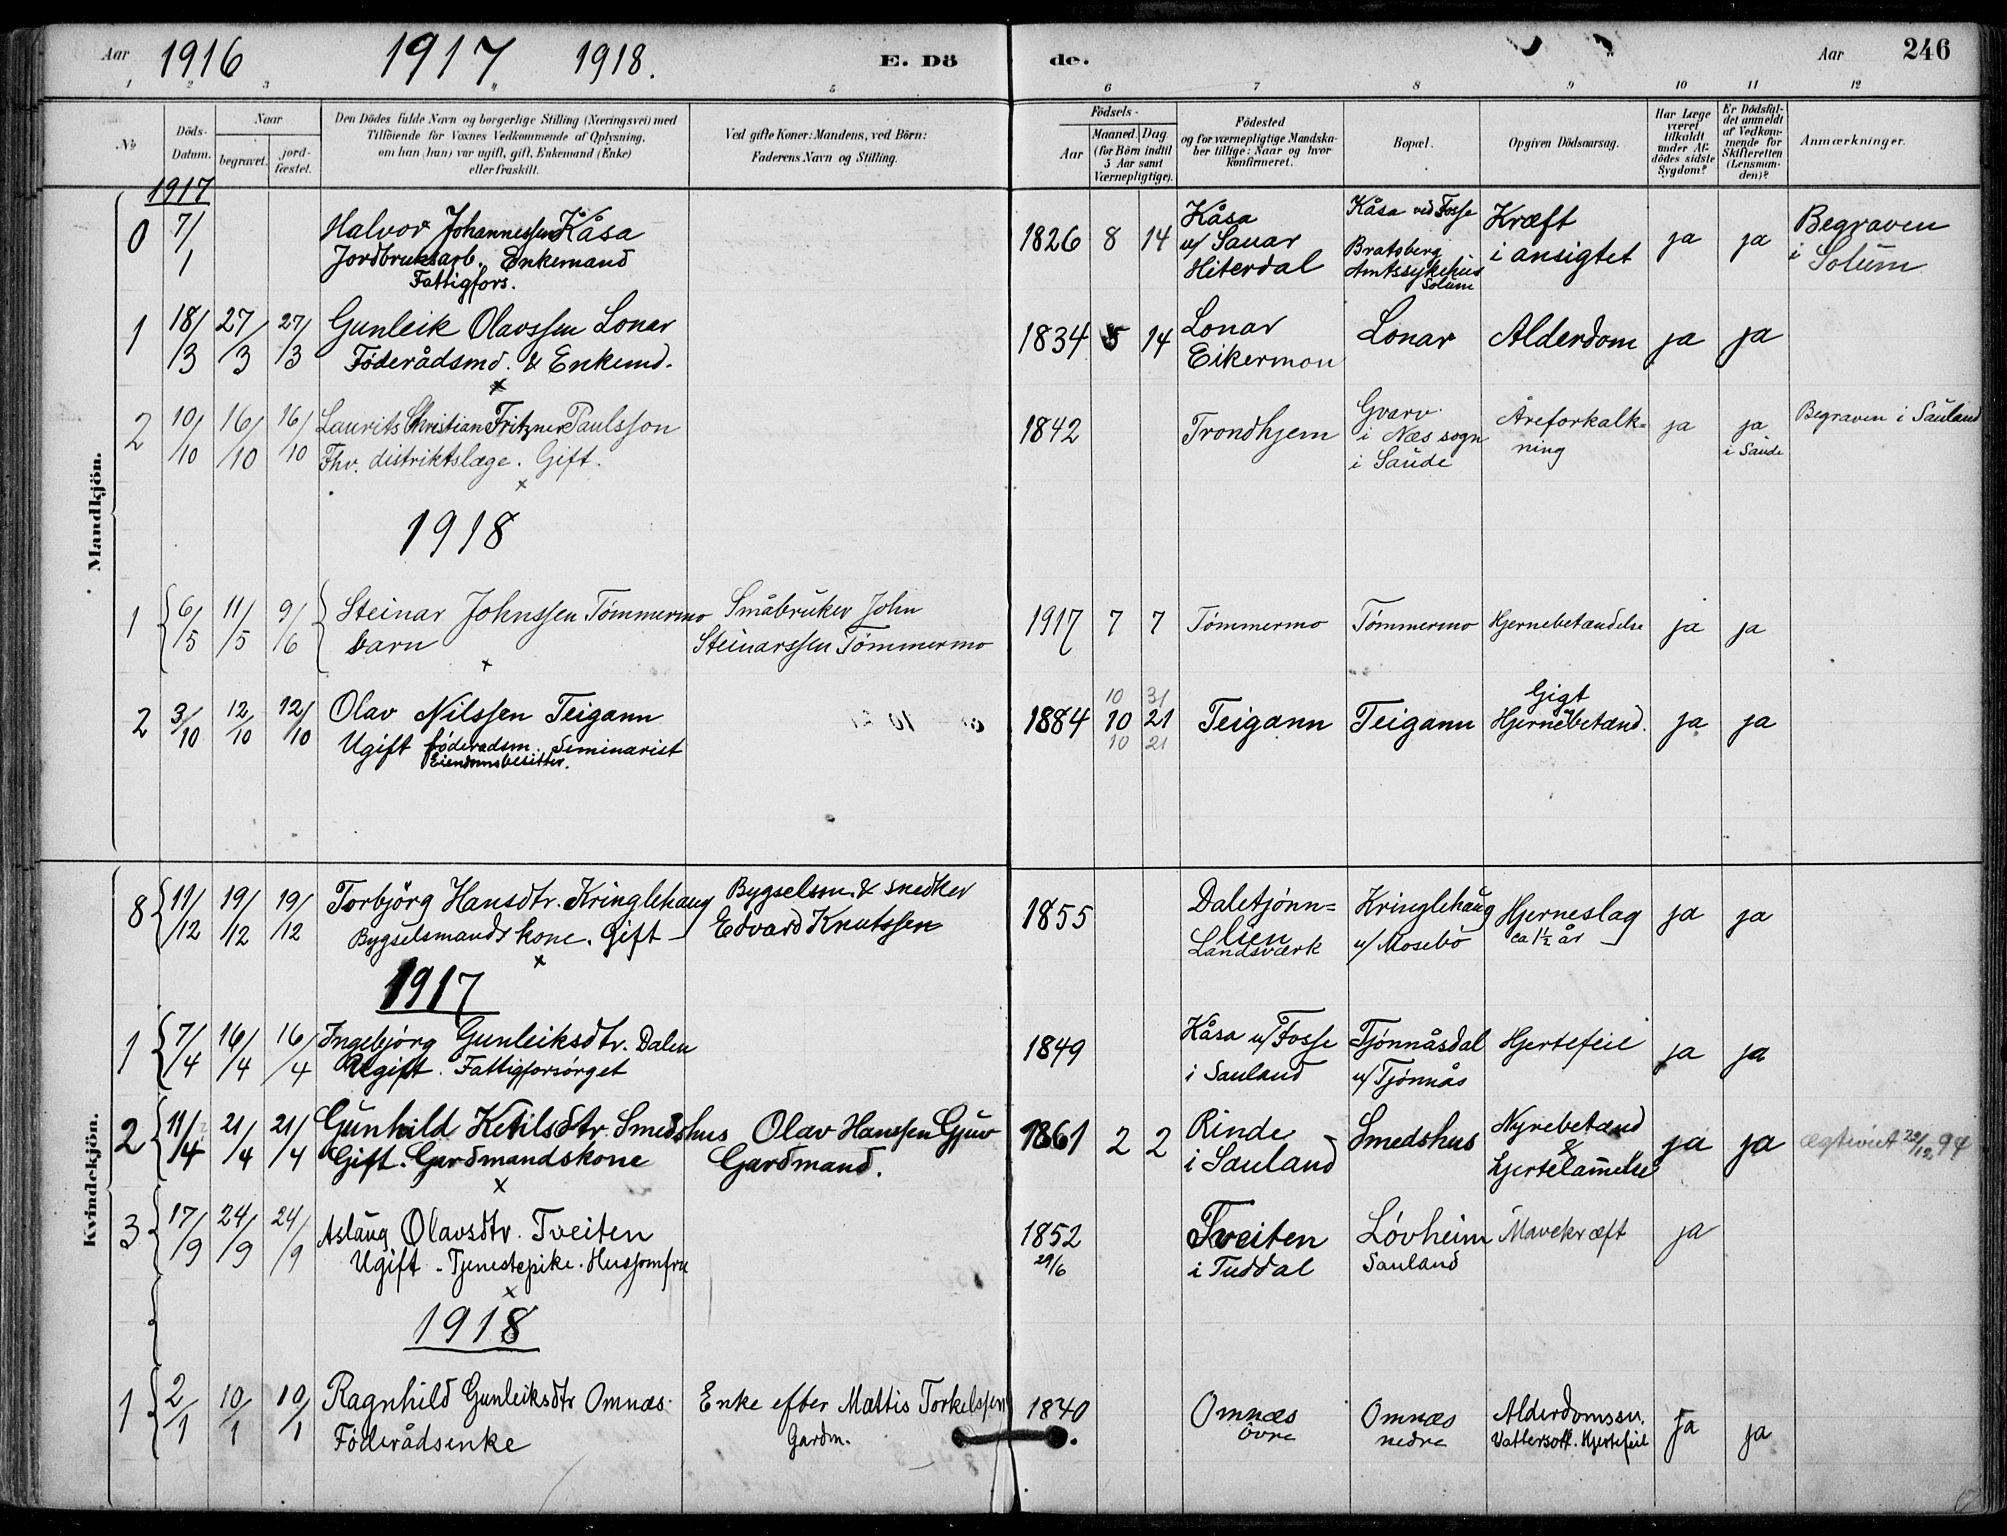 Aar 1916 1917 1918. E. Dö de. Aar 246
1 2 3 4 5 6 7 8 9 10 11 12
No
Döds-Datum.
Naar
begravet.
jord-fæstet.
Den Dödes fulde Navn og borgerlige Stilling (Næringsvei) med
Tilföiende for Voxnes Vedkommende af Oplysning,
om han (hun) var ugift, gift, Enkemand (Enke)
eller fraskilt.
Ved gifte Koner: Mandens, ved Börn:
Faderens Navn og Stilling.
Födsels-
Aar
Maaned. Dag
(for Börn indtil
5 Aar samt
Værnepligtige).
Födested
og for værnepligtige Mandska-
ber tillige: Naar og hvor
konfirmeret.
Bopæl.
Opgiven Dödsaarsag.
Har Læge
været
tilkaldt
under Af-
dödes sidste
Sygdom?
Er Dödsfal-
det anmeldt
af Vedkom-
mende for
Skifteretten
(Lensman-
den)?
Anmærkninger.
Mandkjön.
1917
0 7/1 Halvor Johannessen Kåsa
Jordbruksarb. Enkemand
Fattigfors.
1826 8 14
Kåsa
u/ Sauar
Hiterdal
Kåsa ved Fosse
Bratsberg
Amtssykehus
Solum
Kræft
i ansigtet
ja ja
Begraven
i Solum
1 18/3 27/3 27/3 Gunleik Olavssen Lonar
Föderådsmd. & Enkemd.
x
1834 5 14
Lonar
Eikermon
Lonar Alderdom ja ja
2 10/10 16/10 16/10 Laurits Christian Fritzner Paulsson
Fhv. distriktslæge. Gift.
x
1842 Trondhjem
Gvarv
i Næs sogn
i Saude
Åreforkalk=
ning
ja ja
i Saude
Begraven i Sauland
1918
1 6/5 11/5 9/6 Steinar Johnssen Tömmermo
barn
x
Småbruker John
Steinarssen Tömmermo
1917 7 7 Tömmermo Tömmermo Hjernebetændelse ja ja
2 3/10 12/10 12/10 Olav Nilssen Teigann
Ugift föderadsm. Seminarist
Eiendomsbesitter.
10 31
1884 10 21
10 21
Teigann Teigann
Gigt
Hjernebetænd.
ja ja
Kvindekjön.
8 11/12 19/12 19/12 Torbjörg Hansdtr. Kringlehaug
Bygselsmands kone. Gift
x
Bygselsm. & snedker
Edvard Knutssen
1855
Daletjönn=
lien
Landsværk
Kringlehaug
u/ Mosebö
Hjerneslag
ca 1½ år
ja ja
1917
1 7/4 16/4 16/4 Ingebjörg Gunleiksdtr. Dalen
Ugift. Fattigforsörget
1849
Kåsa u/ Fosse
i Sauland
Tjönnåsdal
u/ Tjönnås
Hjertefeil
ja ja
2 11/4 21/4 21/4 Gunhild Ketilsdtr. Smedshus
Gift. Gardmandskone
x
Olav Hanssen Gjuv
Gardmand.
1861 2 2
Rinde
i Sauland
Smedshus
Nyrebetænd
&
hjertelammelse
ja ja
ægteviet 29/12 94
3 17/9 24/9 24/9 Aslaug Olavsdtr. Tveiten
Ugift - Tjenestepike. Husjomfru
x
1852
29/6
Tveiten
i Tuddal
Lövheim
Sauland
Mavekræft
ja
1918
1 2/1 10/1 10/1 Ragnhild Gunleiksdtr Omnæs.
Föderådsenke
Enke efter Mattis Torkelssen
Gardm.
1840
Omnæs
övre
Omnæs
nedre
Alderdomssv.
Vattersott. Hjertefeil
ja ja